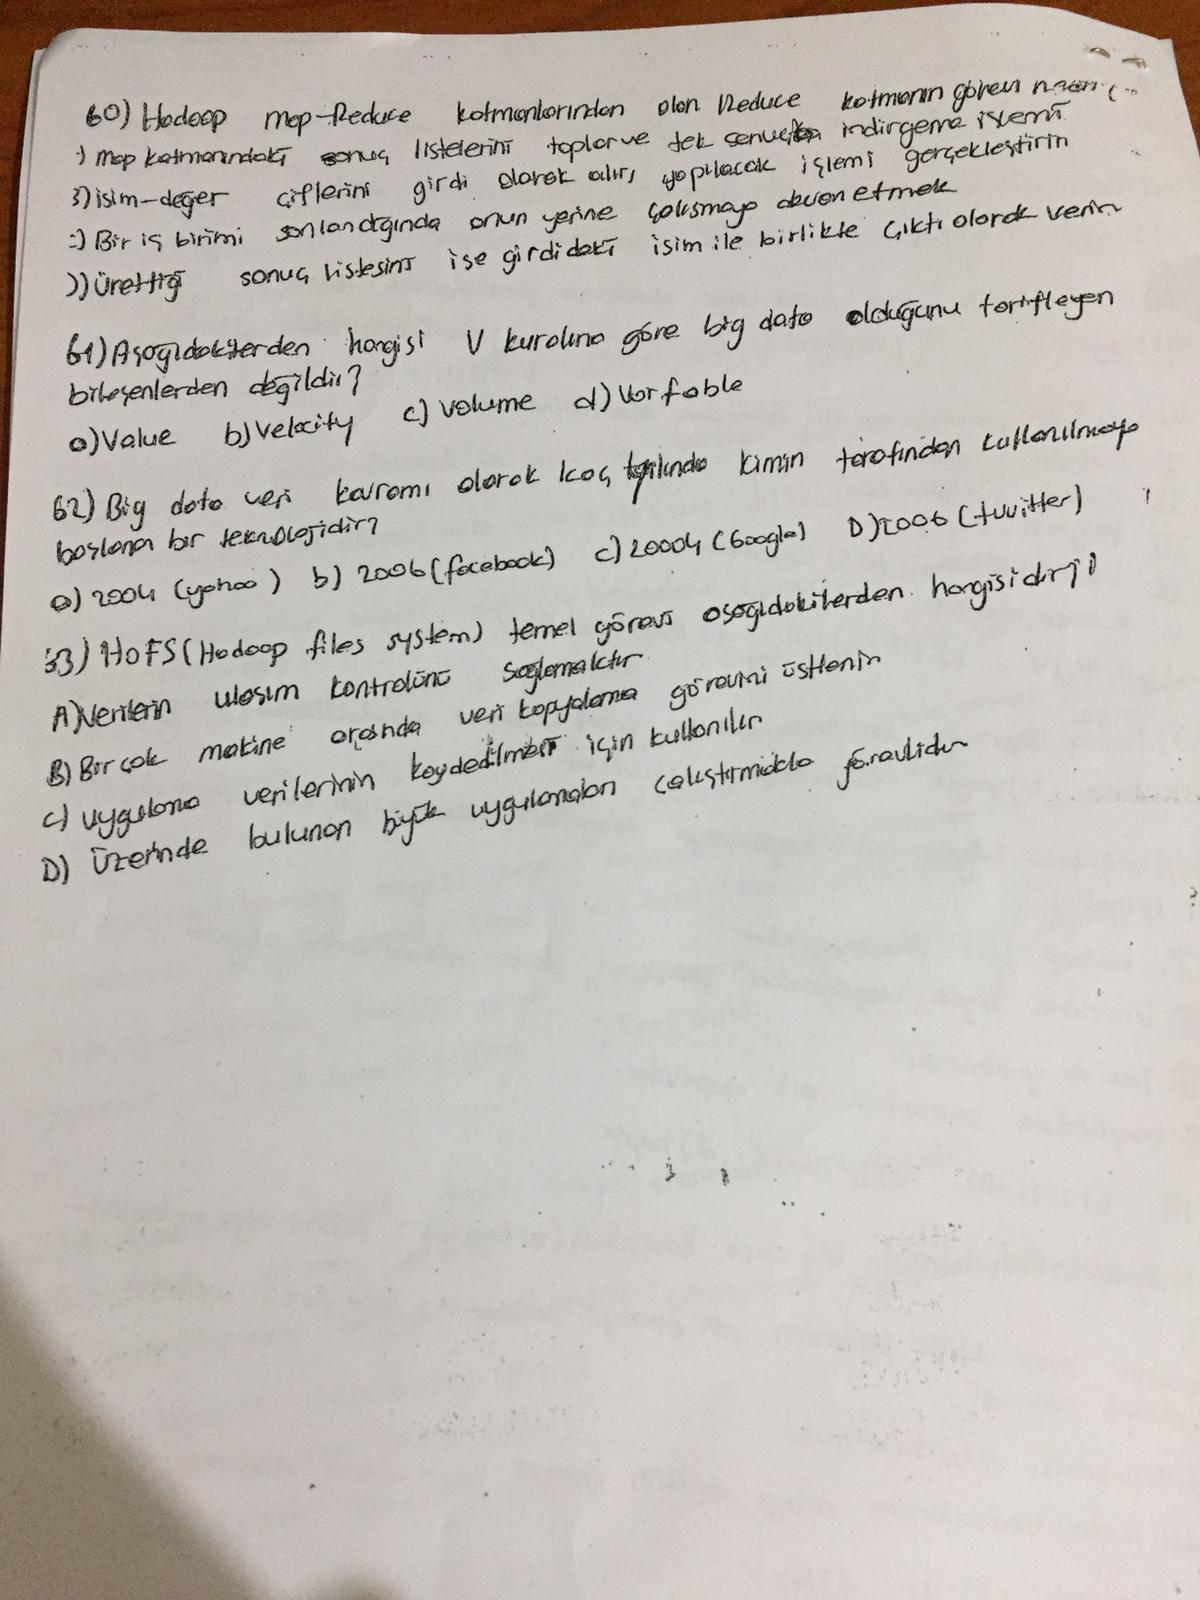 60) Hadoop map-Reduce katmanlarından olan Reduce katmanın görevi
) Map katmanındaki sonuç listelerini toplar ve tek sonuçta indirgeme işlemi
) isim-değer çiflerini girdi olarak alır, yapılacak işlemi gerçekleştirin
:) Bir iş birimi sonlandığında onun yerine çalışmaya devam etmek
)) ürettiği sonuç listesini ise girdideki isim ile birlikte çıktı olarak verin
61) Aşağıdakilerden hangisi V kuralına göre big data olduğunu tarifleyen
bileşenlerden değildir?
a) Value b) Velocity c) Volume d) Varfable
62) Big data veri kavramı olarak kaç yılında kimin tarafından kullanılmaya
başlanan bir teknolojidir?
a) 2004 (yahoo) b) 2006 (facebook) c) 20004 (Google) D) 2006 (twitter)
63) HDFS (Hadoop files system) temel görevi aşağıdakilerden hangisidir?
A) Verilerin ulaşım kontrolünü sağlamaktır
B) Bir çok makine arasında veri kopyalama görevini üstlenir
c) uygulama verilerinin kaydedilmesi için kullanılır
D) Üzerinde bulunan büyük uygulamaları çalıştırmakla görevlidir